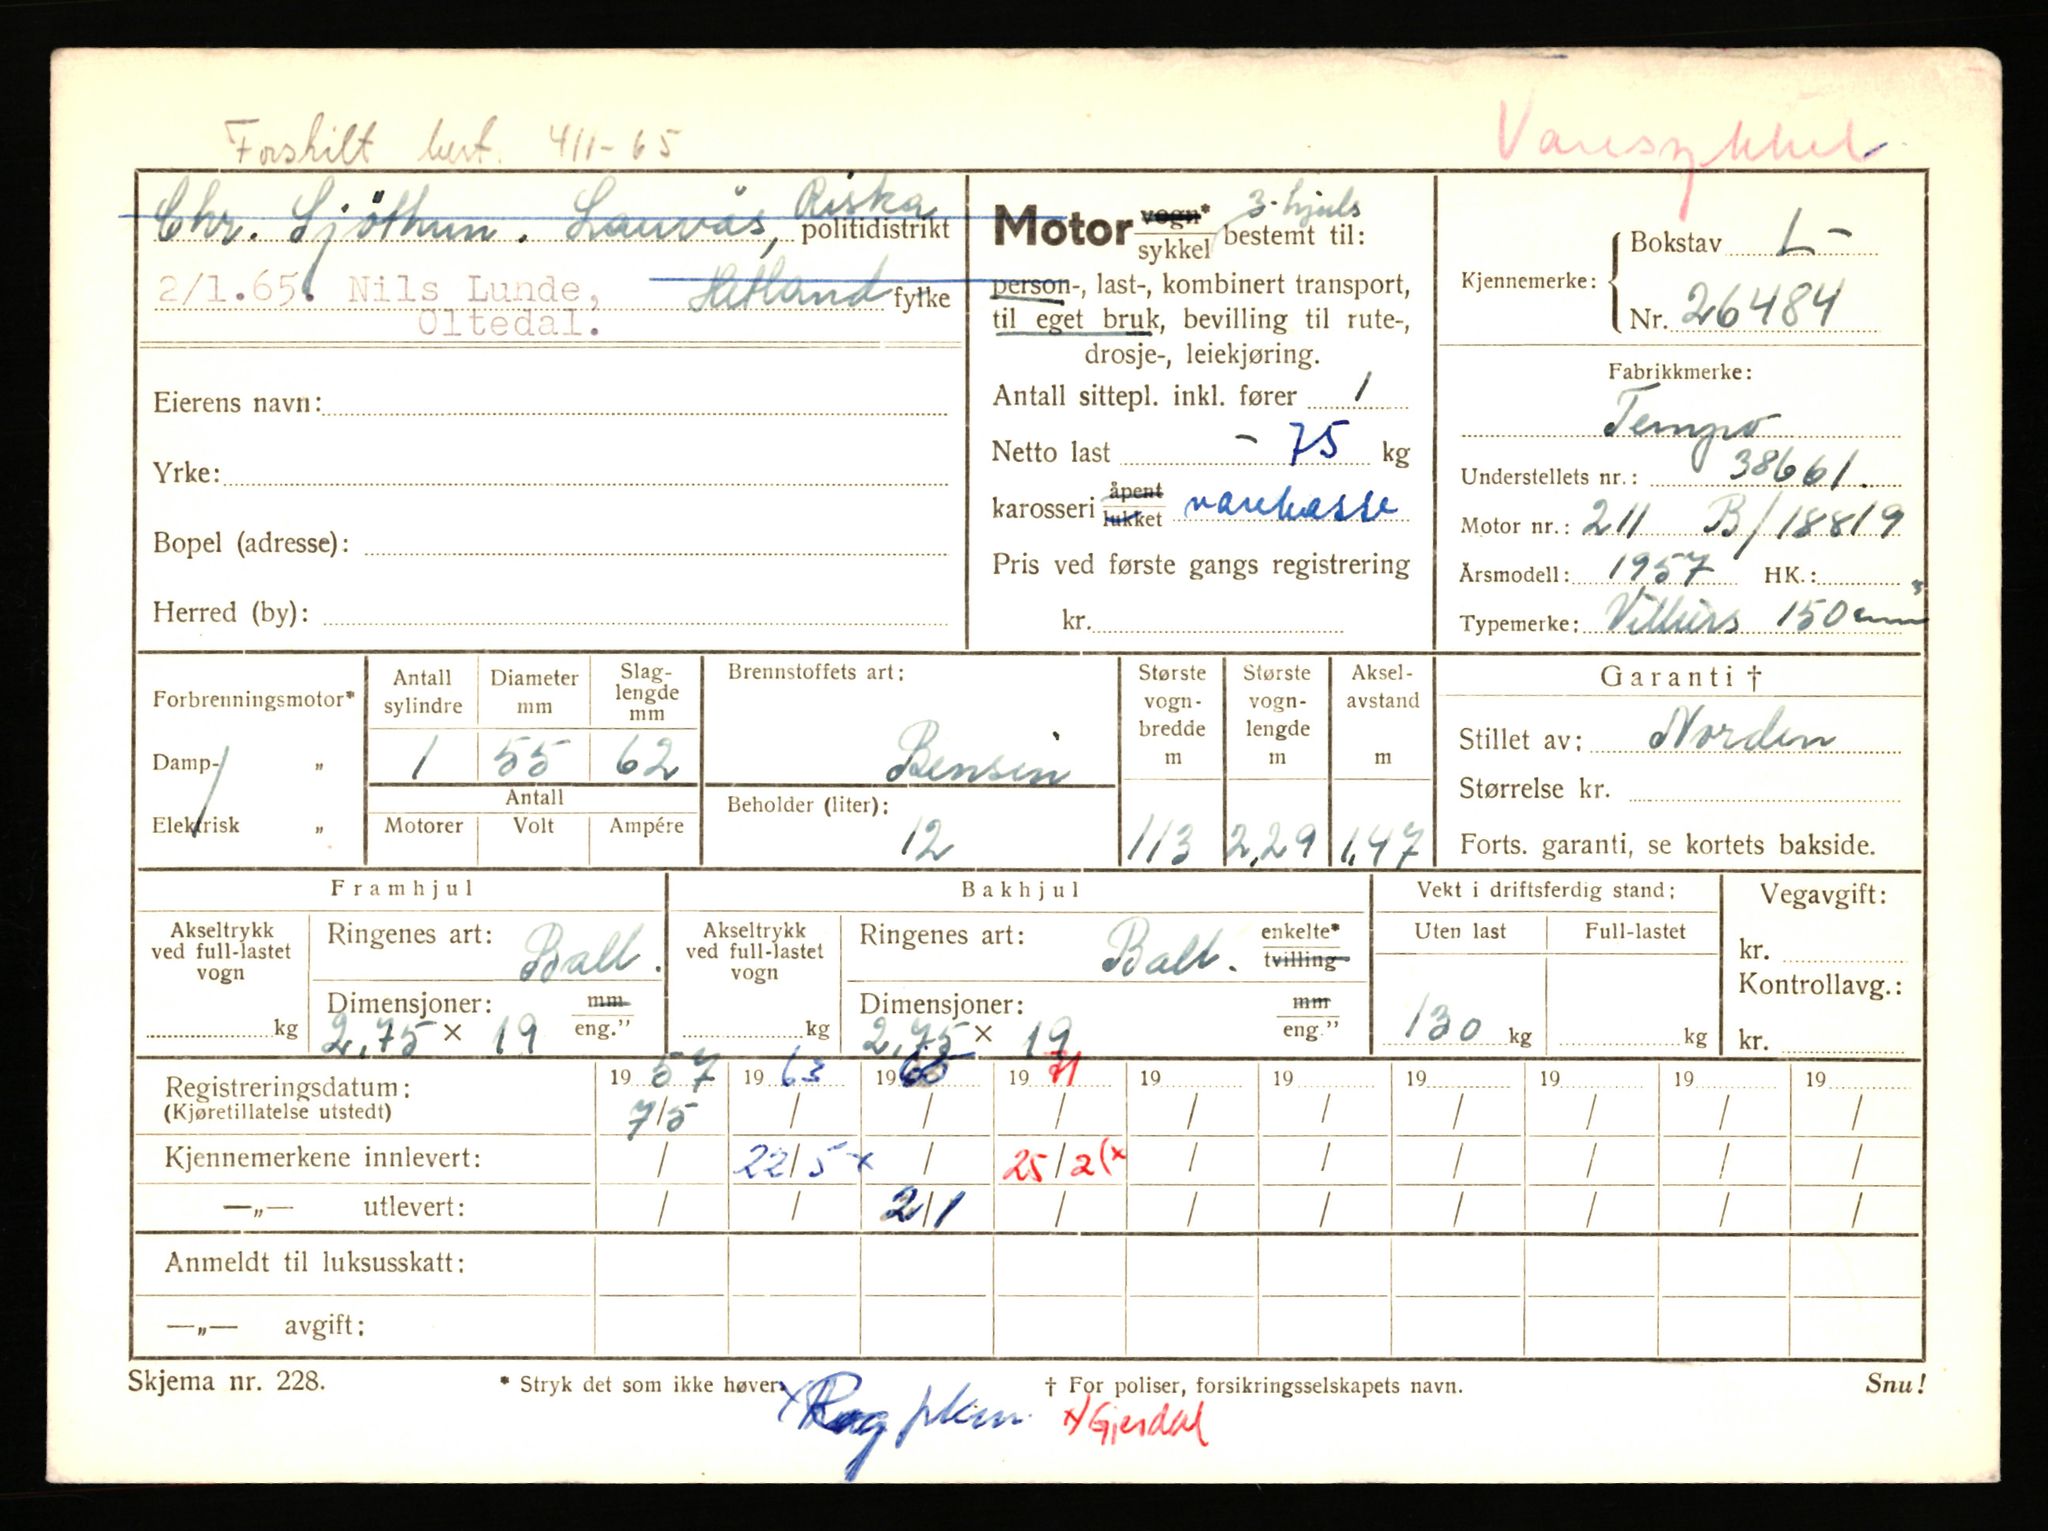 Forskilt best. 4/1-65
Varesykkel
Chr. Sjöthun. Lauvås, Riska politidistrikt
2/1.65. Nils Lunde, Hetland fylke
Oltedal.
Eierens navn:
Yrke:
Bopel (adresse):
Herred (by):
Motor vogn* sykkel 3-hjuls bestemt til:
person-, last-, kombinert transport,
til eget bruk, bevilling til rute-,
drosje-, leiekjøring.
Antall sittepl. inkl. fører 1
Netto last - 75 kg
karosseri åpent lukket varekasse
Pris ved første gangs registrering
kr.
Kjennemerke: Bokstav L-
Nr. 26484
Fabrikkmerke:
Tempo
Understellets nr.: 38661.
Motor nr.: 211 B/18819
Årsmodell: 1957 HK.:
Typemerke: Villiers 150 cm³
Forbrenningsmotor*
Damp- „
Elektrisk „
Antall sylindre
1
Diameter mm
55
Slag-lengde mm
62
Antall
Motorer Volt Ampére
Brennstoffets art:
Bensin
Beholder (liter):
12
Største vogn-bredde m
113
Største vogn-lengde m
2,29
Aksel-avstand m
1,47
Garanti †
Stillet av: Norden
Størrelse kr.
Forts. garanti, se kortets bakside.
Framhjul
Akseltrykk ved full-lastet vogn
kg
Ringenes art: Ball.
Dimensjoner: mm eng.”
2,75 × 19
Bakhjul
Akseltrykk ved full-lastet vogn
kg
Ringenes art: Ball. enkelte* tvilling
Dimensjoner: mm eng.”
2,75 × 19
Vekt i driftsferdig stand:
Uten last Full-lastet
130 kg kg
Vegavgift:
kr.
Kontrollavg.:
kr.
Registreringsdatum: 19 57 19 63 19 65 19 71 19 19 19 19 19 19
(Kjøretillatelse utstedt) 7/5 / / / / / / / / /
Kjennemerkene innlevert: / 22/5 x / 25/2 (x / / / / / /
—„— utlevert: / / 2/1 / / / / / / /
Anmeldt til luksusskatt:
—„— avgift:
Skjema nr. 228. * Stryk det som ikke høver. † For poliser, forsikringsselskapets navn. Snu!
x/ x/Gjesdal